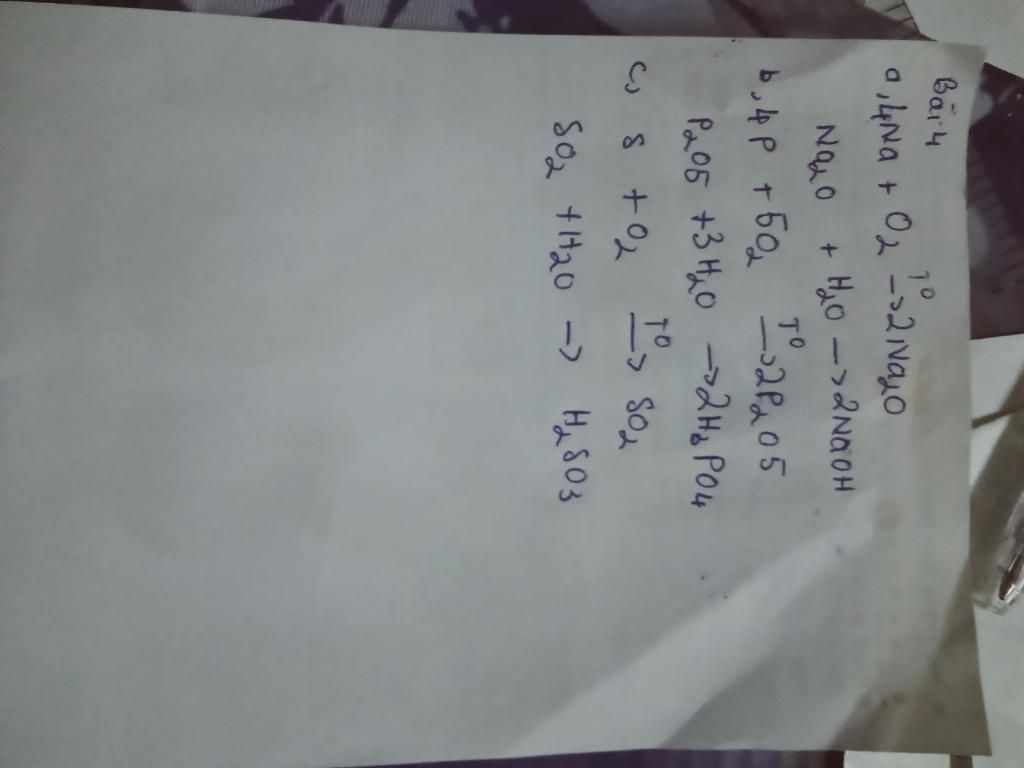 Bài 4
a, 4Na + O2 T0 -> 2Na2O
Na2O + H2O -> 2NaOH
b, 4P + 5O2 T0 -> 2P2O5
P2O5 + 3H2O -> 2H3PO4
c, S + O2 T0 -> SO2
SO2 + H2O -> H2SO3